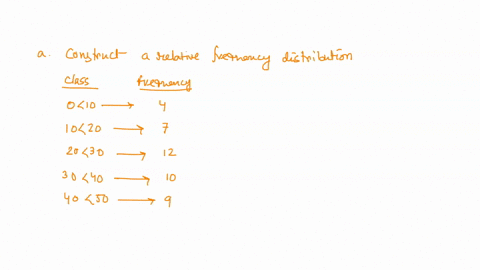 a. Construct a relative frequency distribution
Class frequency
0<10 → 4
10<20 → 7
20<30 → 12
30<40 → 10
40<50 → 9